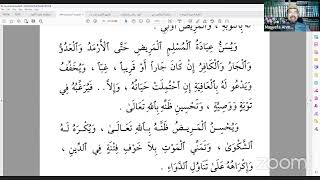 بِٱلتَّوْبَةِ ، وَٱلْمَرِيضُ أَوْلَىٰ .
وَيُسَنُّ عِيَادَةُ ٱلْمُسْلِمِ ٱلْمَرِيضِ حَتَّى ٱلْأَرْمَدُ وَٱلْعَدُوُّ
وَٱلْجَارُ وَٱلْكَافِرُ إِنْ كَانَ جَاراً أَوْ قَرِيباً ، غِبّاً ، وَيُخَفِّفُ
وَيَدْعُو لَهُ بِٱلْعَافِيَةِ إِنِ ٱحْتُمِلَتْ حَيَاتُهُ ، وَإِلَّا.. فَيُرَغِّبُهُ فِي
تَوْبَةٍ وَوَصِيَّةٍ ، وَتَحْسِينِ ظَنِّهِ بِٱللهِ تَعَالَىٰ .
وَيُحْسِنُ ٱلْمَرِيضُ ظَنَّهُ بِٱللهِ تَعَالَىٰ ، وَيُكْرَهُ لَهُ
ٱلشَّكْوَىٰ ، وَتَمَنِّي ٱلْمَوْتِ بِلَا خَوْفِ فِتْنَةٍ فِي ٱلدِّينِ ،
وَإِكْرَاهُهُ عَلَىٰ تَنَاوُلِ ٱلدَّوَاءِ .
zoom